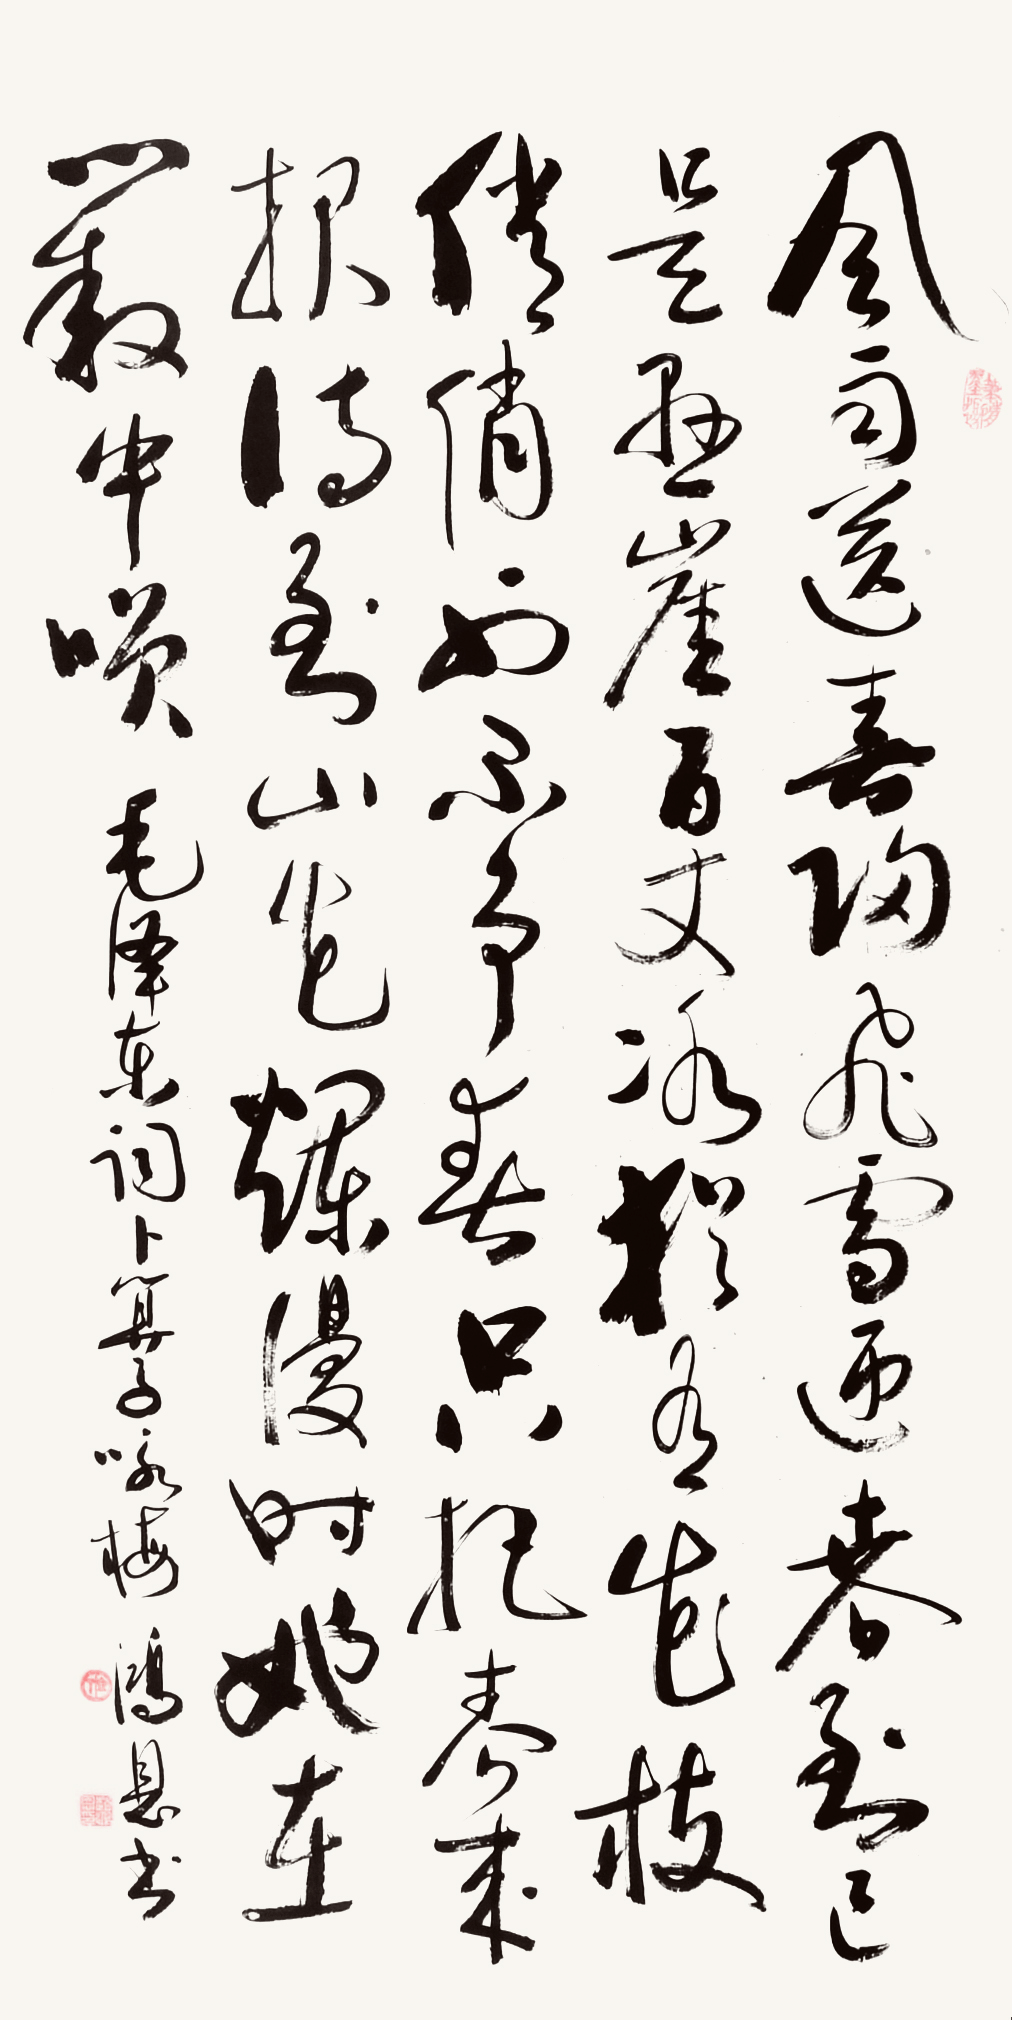 风雨送春归飞雪迎春到已
是悬崖百丈冰犹有花枝
俏俏也不争春只把春来
报待到山花烂漫时她在
丛中咲 毛泽东词卜算子咏梅 鸿恩书